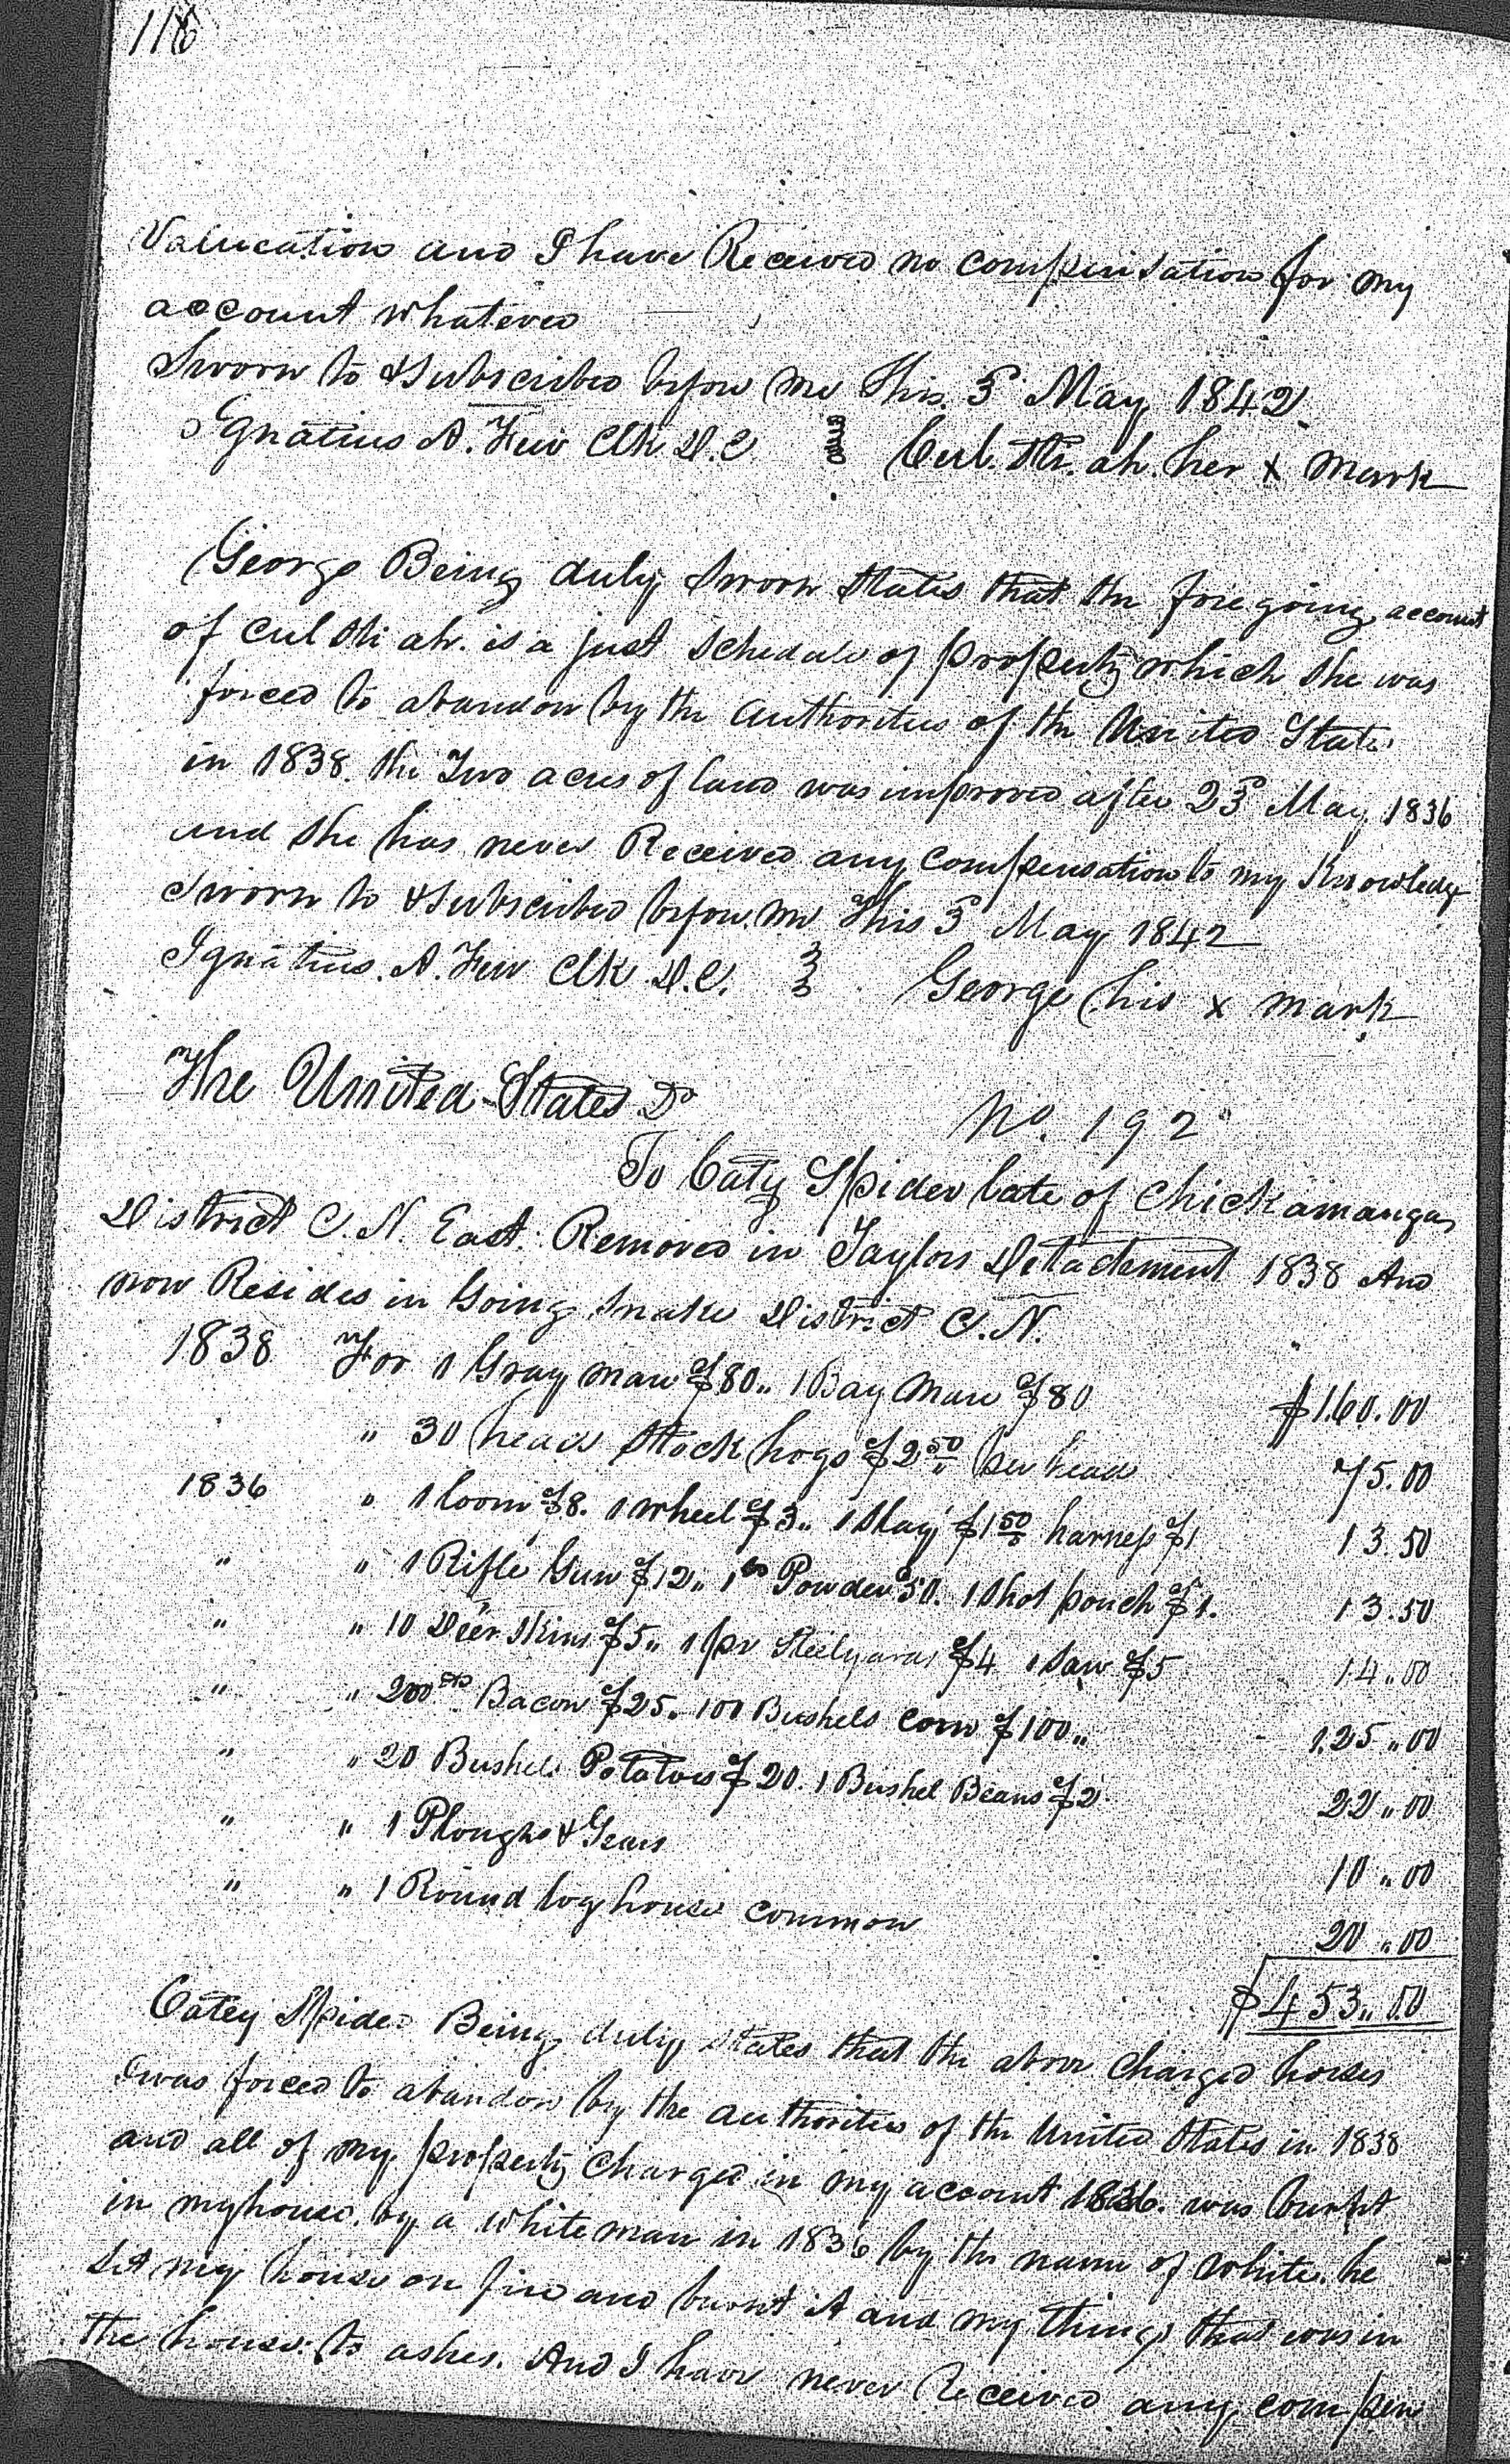 118
Valuation and I have Received no compensation for my
account whatever
Sworn to & Subscribed before me This 3d May 1842
Ignatius A. Few Clk D.C. Cul. sti. ah. her x mark
George Being duly Sworn States that the foregoing account
of Cul sti ah. is a just Schedule of property which she was
forced to abandon by the authorities of the United States
in 1838. the Two acres of land was improved after 23d May 1836
and she has never Received any compensation to my Knowledge
Sworn to & Subscribed before me This 3d May 1842
Ignatius. A. Few Clk D.C. George his x mark
The United States Dr
No. 192
To Caty Spider late of Chickamauga
District C.N. East. Removed in Taylors Detachment 1838 And
now Resides in Going Snake District C.N.
1838 For 1 Gray mare $80.. 1 Bay Mare $80 $160.00
" 30 head Stock hogs $2.50 per head 75.00
1836 " 1 loom $8. 1 wheel $3.. 1 Slay $1.50 harness $1 13.50
" " 1 Rifle Gun $12.. 1 lb Powder 50. 1 Shot pouch $1. 13.50
" " 10 Deer Skins $5.. 1 pr Steelyards $4 1 Saw $5 14..00
" " 200 lbs Bacon $25. 100 Bushels corn $100.. 125..00
" " 20 Bushels Potatoes $20. 1 Bushel Beans $2 22..00
" " 1 Plough & Gears 10..00
" " 1 Round log house common 20..00
$453..00
Catey Spider Being duly States that the above Charged horses
I was forced to abandon by the authorities of the United States in 1838
and all of my property Charged in my account 1836. was burnt
in my house. by a white man in 1836 by the name of White. he
Set my house on fire and burnt it and my things that was in
the house. to ashes. And I have never Received any compen